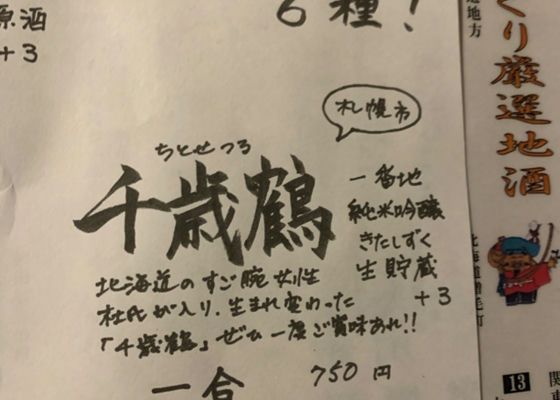 原酒
+3
6種!
札幌市
ちとせつる
千歳鶴
一番地
純米吟醸
きたしずく
生貯蔵
+3
北海道のすご腕女性
杜氏が入り、生まれ変わった
「千歳鶴」ぜひ一度ご賞味あれ!!
一合 750円
くり厳選地酒
地方
北海道増毛町
13
関